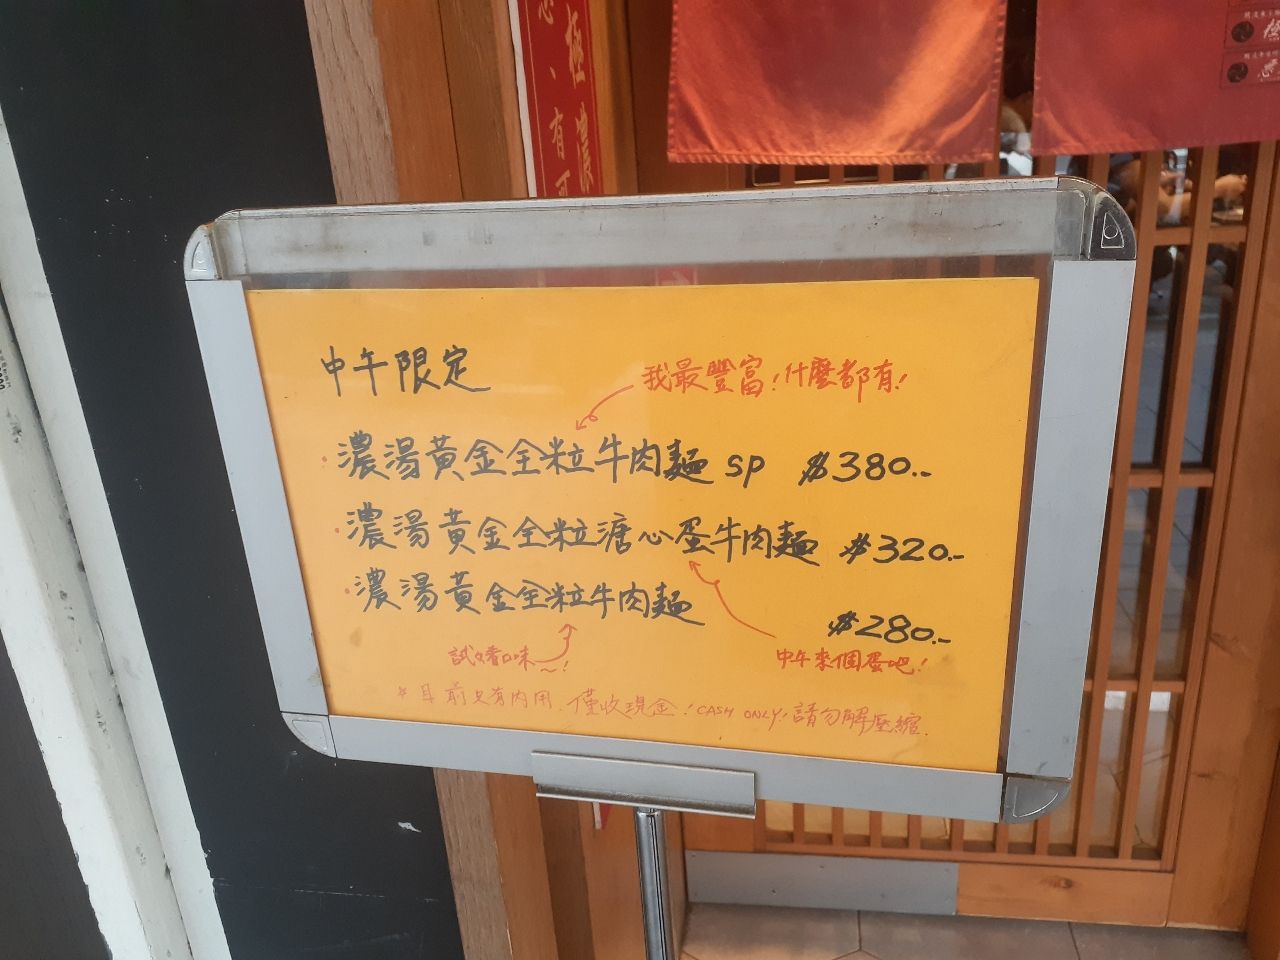 極濃
心、有
中午限定
我最豐富!什麼都有!
·濃湯黃金全粒牛肉麵 SP $380.-
·濃湯黃金全粒溏心蛋牛肉麵 $320.-
·濃湯黃金全粒牛肉麵 $280.-
試好口味~!
中午來個蛋吧!
*目前只有內用.僅收現金!CASH ONLY!請勿解壓縮.